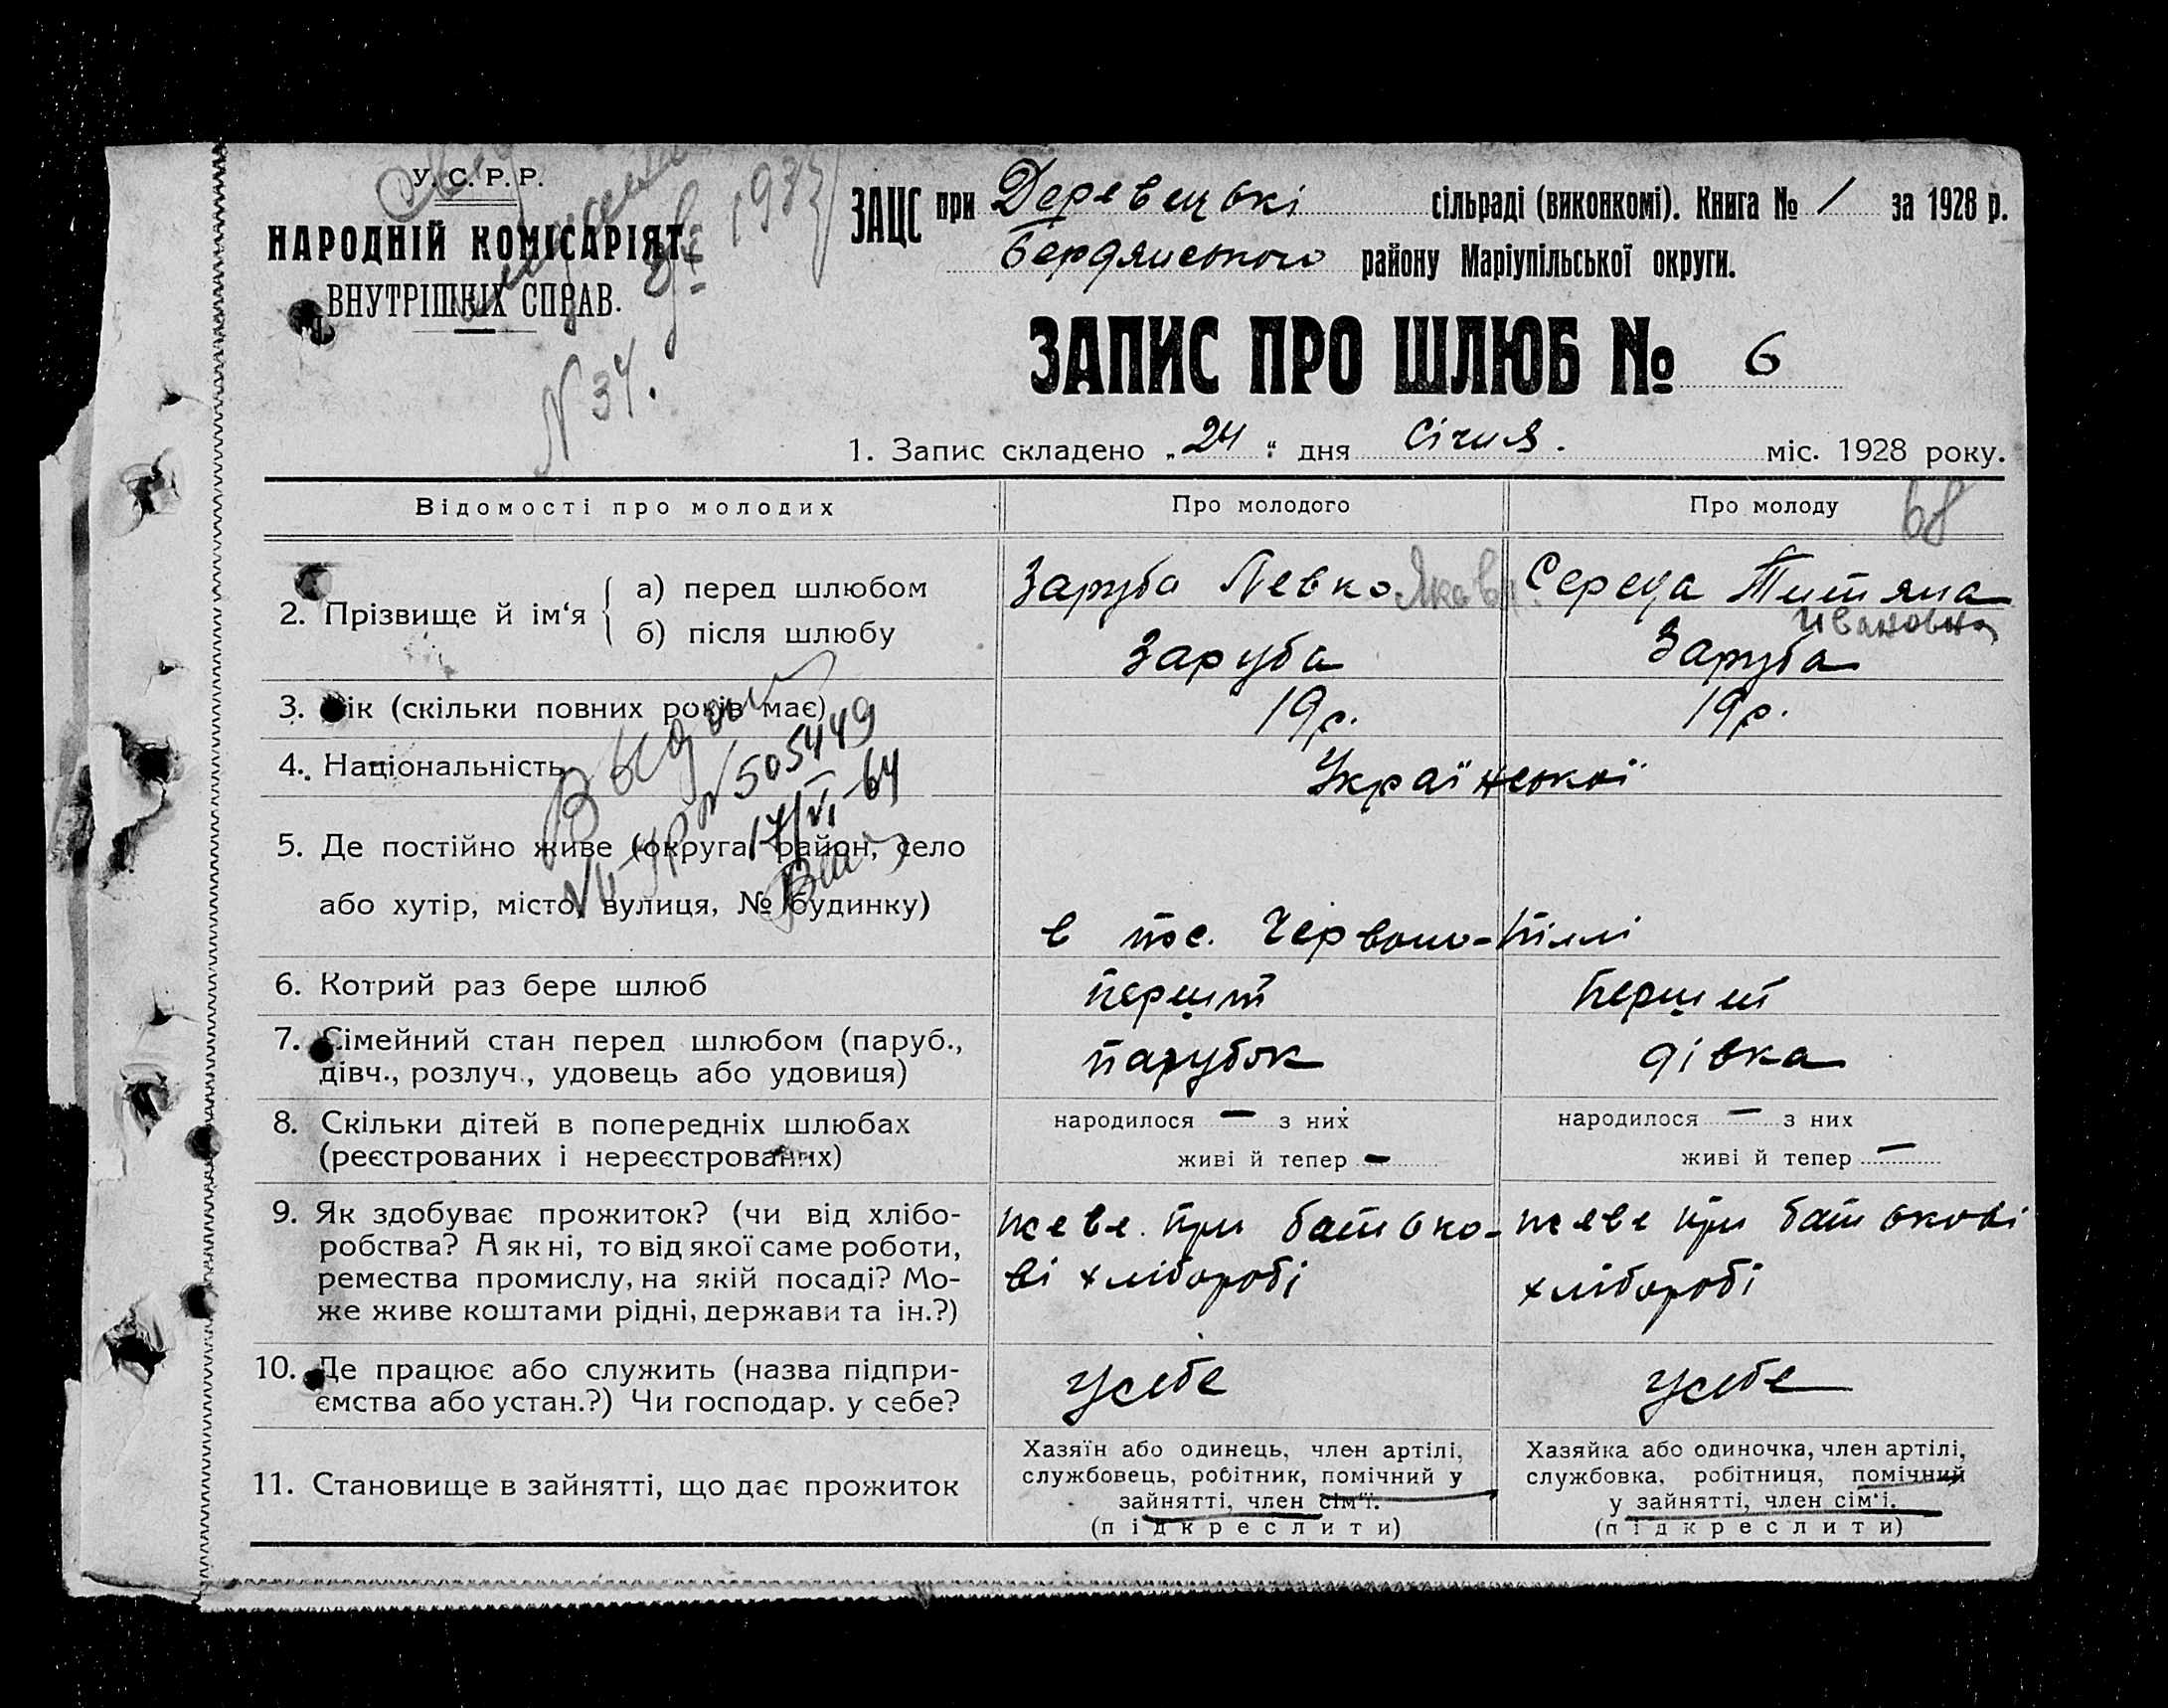 У. С. Р. Р.
НАРОДНІЙ КОМІСАРІЯТ
ВНУТРІШНІХ СПРАВ.
1933
N 34.
ЗАЦС при Деревецькі сільраді (виконкомі). Книга № 1 за 1928 р.
Бердянського району Маріупільської округи.
ЗАПИС ПРО ШЛЮБ № 6
1. Запис складено „24“ дня Січня. міс. 1928 року.
Відомості про молодих
Про молодого
Про молоду
68
2. Прізвище й ім‘я
а) перед шлюбом
Заруба Левко Якавл.
Середа Титяна
Ивановна
б) після шлюбу
Заруба
Заруба
3. Вік (скільки повних років має)
19р.
19р.
4. Національність
Української
Выдано
N 505449
17/VI-64
5. Де постійно живе (округа, район, село
або хутір, місто, вулиця, № будинку)
в пос. Червоно-Піллі
6. Котрий раз бере шлюб
перший
перший
7. Сімейний стан перед шлюбом (паруб.,
дівч., розлуч., удовець або удовиця)
парубок
дівка
8. Скільки дітей в попередніх шлюбах
(реєстрованих і нереєстрованих)
народилося — з них
живі й тепер —
народилося — з них
живі й тепер —
9. Як здобуває прожиток? (чи від хлібо-
робства? А як ні, то від якої саме роботи,
ремества промислу, на якій посаді? Мо-
же живе коштами рідні, держави та ін.?)
жеве при батько-
ві хліборобі
жеве при батькові
хліборобі
10. Де працює або служить (назва підпри-
ємства або устан.?) Чи господар. у себе?
усебе
усебе
11. Становище в зайнятті, що дає прожиток
Хазяїн або одинець, член артілі,
службовець, робітник, помічний у
зайнятті, член сім‘ї.
(підкреслити)
Хазяйка або одиночка, член артілі,
службовка, робітниця, помічний
у зайнятті, член сім‘і.
(підкреслити)